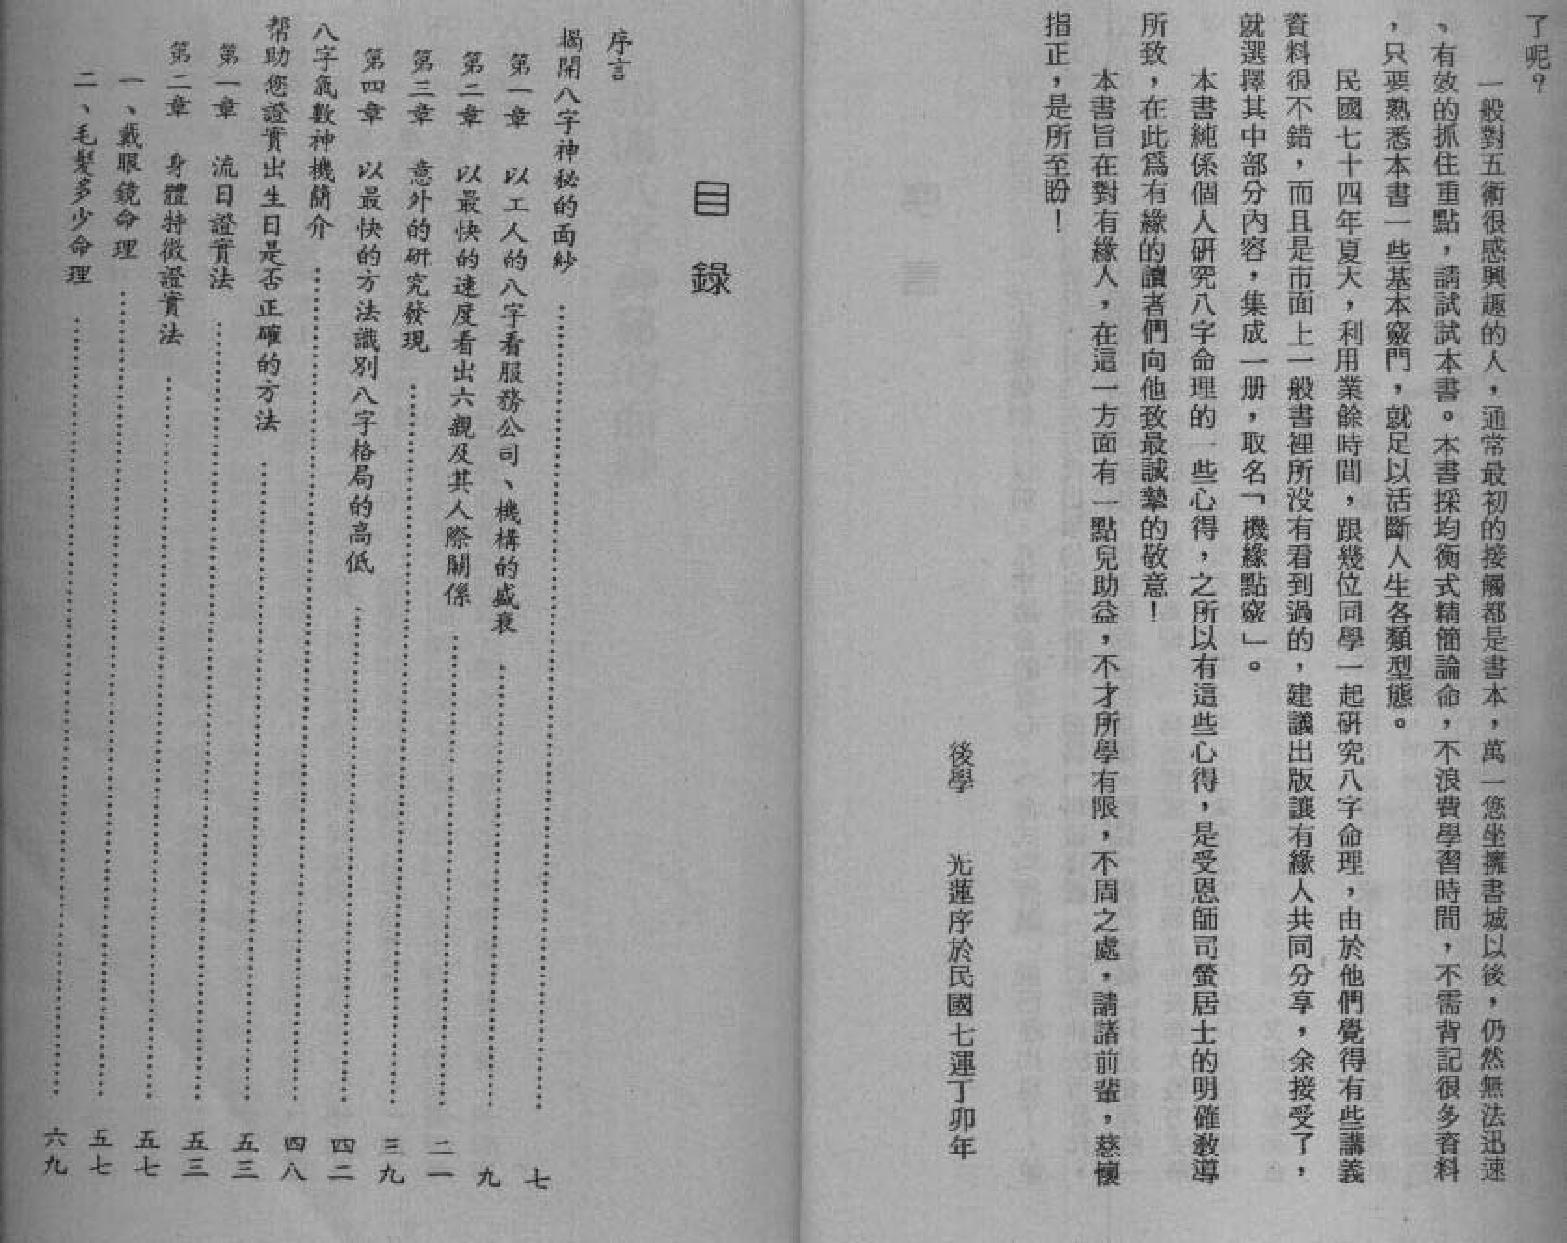 了呢？
一般對五術很感興趣的人，通常最初的接觸都是書本，萬一您坐擁書城以後，仍然無法迅速
、有效的抓住重點，請試試本書。本書採均衡式精簡論命，不浪費學習時間，不需背記很多資料
，只要熟悉本書一些基本竅門，就足以活斷人生各類型態。
民國七十四年夏天，利用業餘時間，跟幾位同學一起研究八字命理，由於他們覺得有些講義
資料很不錯，而且是市面上一般書裡所没有看到過的，建議出版讓有緣人共同分享，余接受了，
就選擇其中部分內容，集成一册，取名「機緣點竅」。
本書純係個人研究八字命理的一些心得，之所以有這些心得，是受恩師司螢居士的明確教導
所致，在此爲有緣的讀者們向他致最誠摯的敬意！
本書旨在對有緣人，在這一方面有一點兒助益，不才所學有限，不周之處，請諸前輩，慈懷
指正，是所至盼！
後學 光蓮序於民國七運丁卯年
目錄
序言
揭開八字神秘的面紗 七
第一章 以工人的八字看服務公司、機構的盛衰 九
第二章 以最快的速度看出六親及其人際關係 二一
第三章 意外的研究發現 三九
第四章 以最快的方法識別八字格局的高低 四二
八字氣數神機簡介 四八
帮助您證實出生日是否正確的方法 五三
第一章 流日證實法 五三
第二章 身體特徵證實法 五七
一、戴眼鏡命理 五七
二、毛髮多少命理 六九